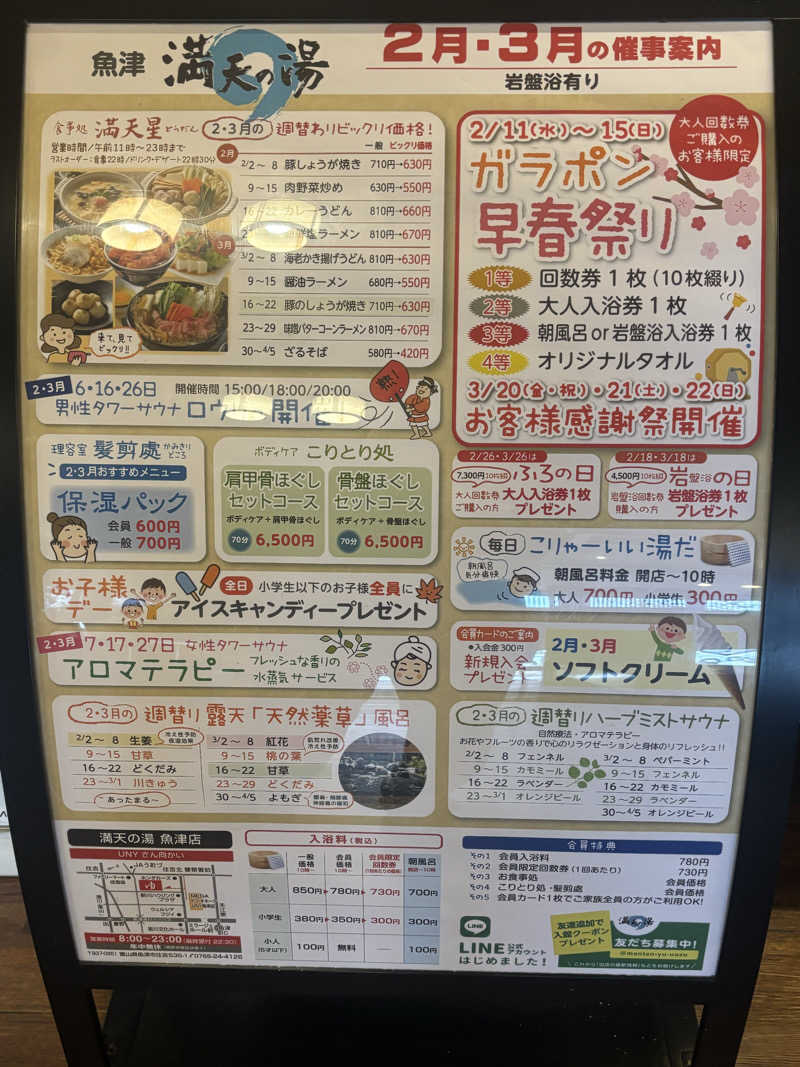 魚津 満天の湯
2月・3月の催事案内
岩盤浴有り
食事処 満天星 どうだん 2・3月の 週替わりビックリ価格!
営業時間/午前11時〜23時まで
ラストオーダー:食事22時/ドリンク・デザート22時30分
一般 ビックリ価格
2月
2/2〜 8 豚しょうが焼き 710円→630円
9〜15 肉野菜炒め 630円→550円
16〜22 カレーうどん 810円→660円
塩ラーメン 810円→670円
3月
3/2〜 8 海老かき揚げうどん 810円→630円
9〜15 醤油ラーメン 680円→550円
16〜22 豚のしょうが焼き 710円→630円
23〜29 味噌バターコーンラーメン 810円→670円
30〜4/5 ざるそば 580円→420円
来て、見てビックリ!!
2/11(水)〜15(日)
大人回数券
ご購入の
お客様限定
ガラポン
早春祭り
1等 回数券1枚(10枚綴り)
2等 大人入浴券1枚
3等 朝風呂or岩盤浴入浴券1枚
4等 オリジナルタオル
3/20(金・祝)・21(土)・22(日)
お客様感謝祭開催
2・3月 6・16・26日 開催時間 15:00/18:00/20:00
男性タワーサウナ
開催
熱!
理容室 髪剪處 かみきりどころ
2・3月おすすめメニュー
保湿パック
会員 600円
一般 700円
ボディケア こりとり処
肩甲骨ほぐし
セットコース
ボディケア+肩甲骨ほぐし
70分 6,500円
骨盤ほぐし
セットコース
ボディケア+骨盤ほぐし
70分 6,500円
2/26・3/26は
7,300円(10枚綴) ふろの日
大人回数券
ご購入の方
大人入浴券1枚
プレゼント
2/18・3/18は
4,500円(10枚綴) 岩盤浴の日
岩盤浴回数券
購入の方
岩盤浴券1枚
プレゼント
毎日 こりゃーいい湯だ
朝風呂
気分爽快
朝風呂料金 開店〜10時
大人 700円 小学生 300円
お子様
デー
全日 小学生以下のお子様全員に
アイスキャンディープレゼント
2・3月 7・17・27日 女性タワーサウナ
アロマテラピー
フレッシュな香りの
水蒸気サービス
会員カードのご案内
●入会金300円
新規入会
プレゼント
2月・3月
ソフトクリーム
2・3月の 週替り 露天「天然薬草」風呂
2/2〜 8 生姜
冷え性予防
保温効果
9〜15 甘草
16〜22 どくだみ
23〜3/1 川きゅう
あったまる〜
3/2〜 8 紅花
9〜15 桃の葉
16〜22 甘草
23〜29 どくだみ
30〜4/5 よもぎ
2・3月の 週替りハーブミストサウナ
自然療法・アロマテラピー
お花やフルーツの香りで心のリラクゼーションと身体のリフレッシュ!!
2/2〜 8 フェンネル
9〜15 カモミール
16〜22 ラベンダー
23〜3/1 オレンジピール
3/2〜 8 ペパーミント
9〜15 フェンネル
16〜22 カモミール
23〜29 ラベンダー
30〜4/5 オレンジピール
満天の湯 魚津店
UNYさん向かい
営業時間 8:00〜23:00(最終受付 22:30)
年中無休
入浴料(税込)
一般価格 会員価格 会員限定回数券 朝風呂
大人 850円→780円→730円 700円
小学生 380円→350円→300円 300円
小人 100円 無料 — 100円
会員特典
その1 会員入浴料 780円
その2 会員限定回数券(1回あたり) 730円
その3 お食事処 会員価格
その4 こりとり処・髪剪處 会員価格
その5 会員カード1枚でご家族全員の方がご利用OK!
LINE
LINE公式アカウント
はじめました!
友達追加で
入館クーポン
プレゼント
満天の湯
友だち募集中!
@manten-yu-uozu